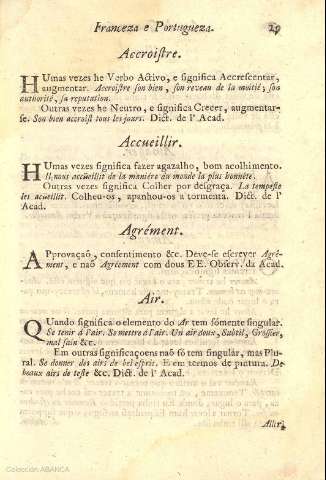 Franceza e Portugueza. 29
Accroistre.
HUmas vezes he Verbo Activo, e significa Accrescentar,
augmentar. Accroistre son bien, son reveau de la mutié; son
authorité, sa reputation.
Outras vezes he Neutro, e significa Crecer, augmentar-
se. Son bien accroist tous les jours. Dict. de l' Acad.
Accueillir.
HUmas vezes significa fazer agazalho, bom acolhimento.
Il nous accüeillit de la maniére du monde la plus honnéte.
Outras vezes significa Colher por desgraça. La tempeste
les acüeillit. Colheu-os, apanhou-os a tormenta. Dict. de l'
Acad.
Agrément.
APprovaçaõ, consentimento &c. Deve-se escrever Agré-
ment, e naõ Agréement com dous EE. Observ. da Acad.
Air.
QUando significa o elemento do Ar tem sómente singular.
Se tenir á l'air. Se mettre á l'air. Un air doux, Subtil, Grossier,
mal sain &c.
Em outras significaçoens naõ só tem singular, mas Plu-
ral. Se donner des airs de bel esprit. E em termos de pintura. De
beaux airs de teste &c. Dict. de l' Acad.
Allir,
Colección ABANCA